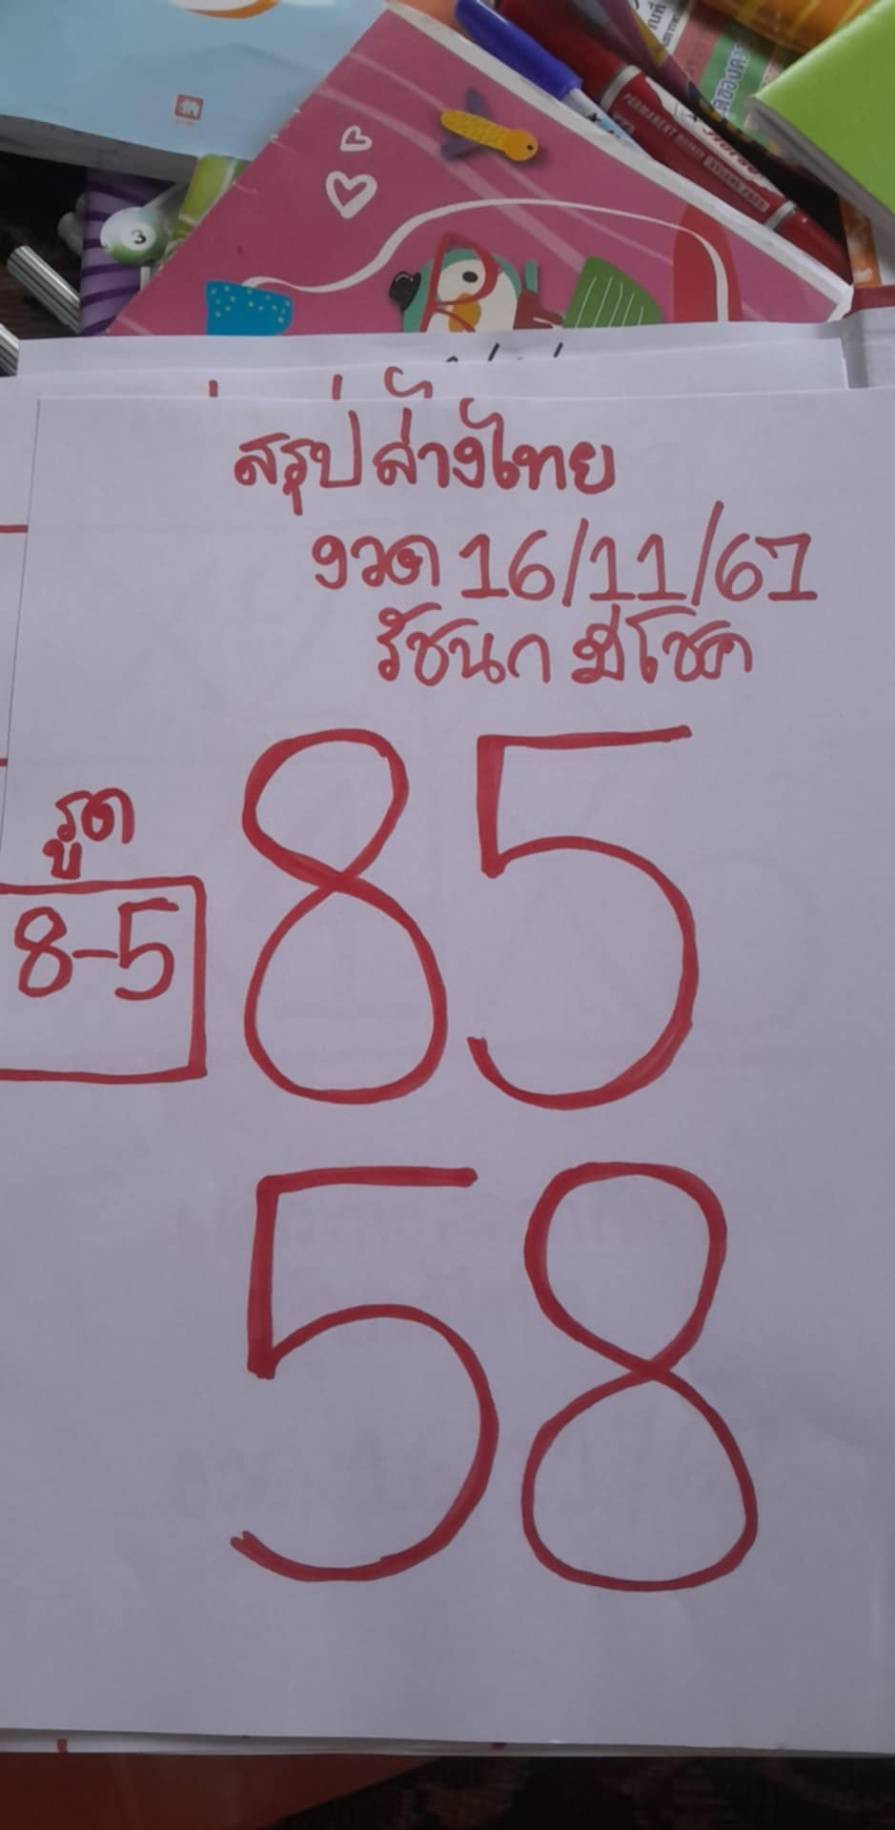 3
PERMANENT
สรุปล่างไทย
งวด 16/11/67
รัชนก มีโชค
รูด
8-5
85
58